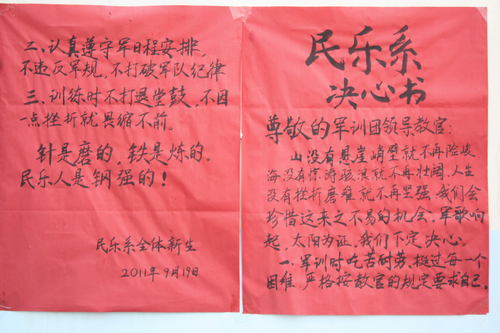 民乐系
决心书
尊敬的军训团领导教官:
山没有悬崖峭壁就不再险峻,
海没有惊涛骇浪就不再壮阔,人生
没有挫折磨难就不再坚强,我们会
珍惜这来之不易的机会、军歌响
起,太阳为证,我们下定决心。
一、军训时吃苦耐劳,挺过每一个
困难,严格按教官的规定要求自己。
二、认真遵守军日程安排,
不违反军规,不打破军队纪律
三、训练时不打退堂鼓,不因
一点挫折就畏缩不前。
针是磨的,铁是炼的。
民乐人是钢强的!
民乐系全体新生
2011年9月19日